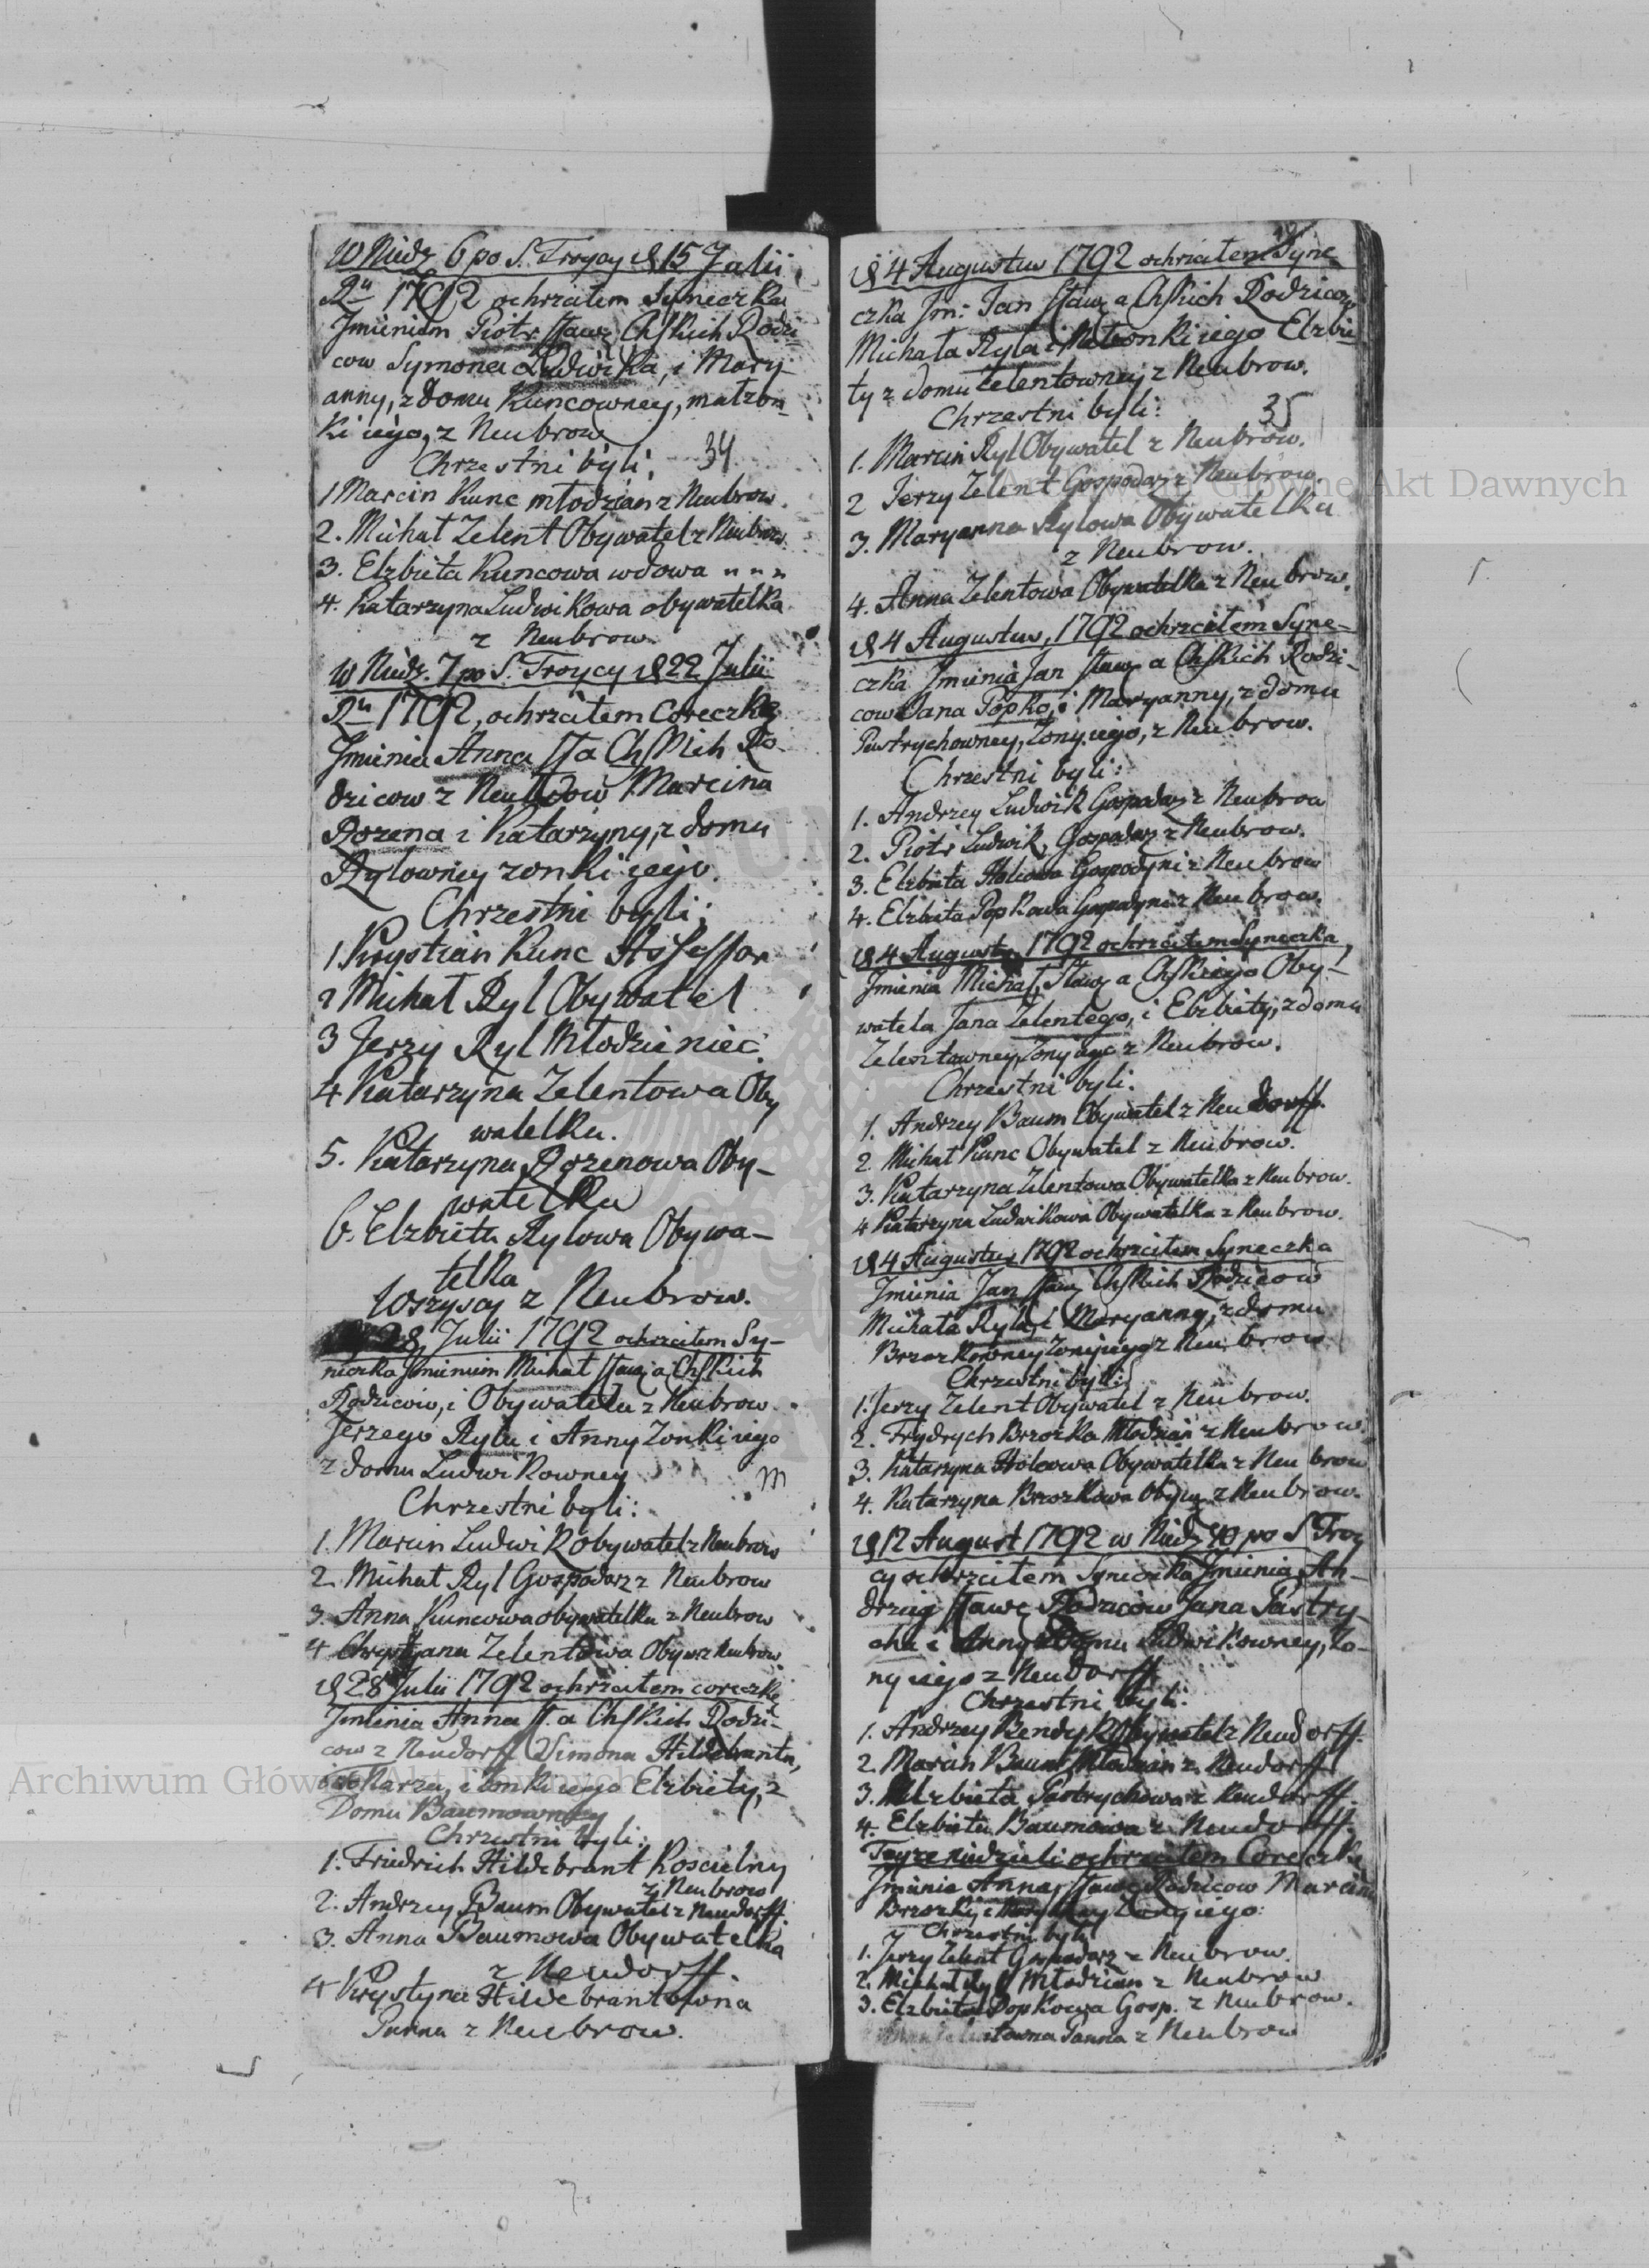 W Niedz. 6 po S. Troycy d 15 Julii
Ru 1792 ochrzciłem Syneczka
Jmieniem Piotr sław. Chſkich Rodzi-
cow Symona Ludwika, i Mary-
anny, z domu Kuncowney, małzon-
ki iego, z Neubrow
Chrzestni byli: 34
1 Marcin Kunc młodzian z Neubrow.
2. Michał Zelent Obywatel z Neubrow.
3. Elzbieta Kuncowa wdowa " " "
4. Katarzyna Ludwikowa obywatelka
z Neubrow
W Niedz. 7 po S. Troycy d 22 Julii
Ru 1792, ochrzciłem Coreczkę
Jmienia Anna ſſa Chſkich Ro-
dzicow z Neubrow Marcina
Rozena i Katarzyny, z domu
Rylowney zonki iego.
Chrzestni byli:
1 Krystian Kunc Aſseſsor
2 Michał Ryl Obywatel
3 Jerzy Ryl Młodzieniec.
4 Katarzyna Zelentowa Oby
watelka.
5. Katarzyna Rozenowa Oby-
watelka
6. Elzbieta Rylowa Obywa-
telka
Wszyscy z Neubrow.
28 Julii 1792 ochrzciłem Sy-
neczka Jmieniem Michał sław. a Chſkich
Rodzicow, i Obywatelu z Neubrow
Jerzego Ryla i Anny Zonki iego
z domu Ludwikowney
m
Chrzestni byli:
1. Marcin Ludwik obywatel z Neubrow
2. Michał Ryl Gospodarz z Neubrow
3. Anna Kuncowa obywatelka z Neubrow
4 Chrystyana Zelentowa Obyw z Neubrow.
d 28 Julii 1792 ochrzciłem coreczkę
Jmienia Anna ſſ. a Chſkich Rodzi-
cow z Neudorff Simona Hildebranta,
i Zonki iego Elzbiety, z
Domu Baumowney
Chrzestni byli:
1. Friedrich Hildebrant Koscielny
z Neubrow
2. Andrzey Baum Obywatel z Neudorff.
3. Anna Baumowa Obywatelka
z Neudorff.
4 Krystyna Hildebrantowna
Panna z Neubrow.
d 4 Augustus 1792 ochrzciłem Syne
czka Jm: Jan sław. a Chſkich Rodzicow
Michała Ryla i Małzonki iego Elzbie
ty z domu Zelentowney z Neubrow.
Chrzestni byli: 35
1. Marcin Ryl Obywatel z Neubrow.
2 Jerzy Zelent Gospodarz z Neubrow.
3. Maryanna Rylowa Obywatelka
z Neubrow.
4. Anna Zelentowa Obywatelka z Neubrow.
d 4 Augustus, 1792 ochrzciłem Syne-
czka Jmienia Jan sław. a Chſkich Rodzi-
cow Jana Popko, i Maryanny, z domu
Pastrychowney, Zony iego, z Neubrow.
Chrzestni byli:
1. Andrzey Ludwik Gospodarz z Neubrow
2. Piotr Ludwik, Gospodarz z Neubrow.
3. Elzbieta Gospodyni z Neubrow
4. Elzbieta Popkowa Gospodyni z Neubrow.
d 4 Augusta 1792 ochrzciłem Syneczka
Jmienia Michał, Sław. a Chſkiego Oby-
watela Jana Zelentego, i Elzbiety, z domu
Zelentowney, Zony iego z Neubrow.
Chrzestni byli.
1. Andrzey Baum Obywatel z Neudorff.
2. Michał Kunc Obywatel z Neubrow.
3. Katarzyna Zelentowa Obywatelka z Neubrow.
4 Katarzyna Ludwikowa Obywatelka z Neubrow.
d 4 Augustus 1792 ochrzciłem Syneczka
Jmienia Jan sław. Chſkich Rodzicow
Michała Ryla, i Maryanny, z domu
Brzozkowney Zony iego z Neubrow
Chrzestni byli:
1. Jerzy Zelent Obywatel z Neubrow.
2. Frydrych Brzozka Młodzian z Neubrow.
3. Katarzyna Obywatelka z Neubrow
4. Katarzyna Brzozkowa Obyw. z Neubrow.
d 12 August 1792 w Niedz 10 po S Troy
cy ochrzciłem Syneczka Jmienia An-
drzey sławę Rodzicow Jana Pastry-
cha i Anny z Domu Ludwikowney, Zo-
ny iego z Neudorff.
Chrzestni byli.
1. Andrzey Bendyk Obywatel z Neudorff.
2. Marcin Baum Młodzian z Neudorff
3. Elzbieta Pastrychowa z Neudorff.
4. Elzbieta Baumowa z Neudorff.
Teyze niedzieli ochrzciłem Coreczkę
Jmienia Anna, sławę Rodzicow Marcina
Brzozki i Zony iego:
Chrzestni byli
1. Jerzy Zelent Gospodarz z Neubrow.
2. Michał Ryl Młodzian z Neubrow
3. Elzbieta Popkowa Gosp. z Neubrow.
Panna z Neubrow
Archiwum Główne Akt Dawnych
Archiwum Główne Akt Dawnych